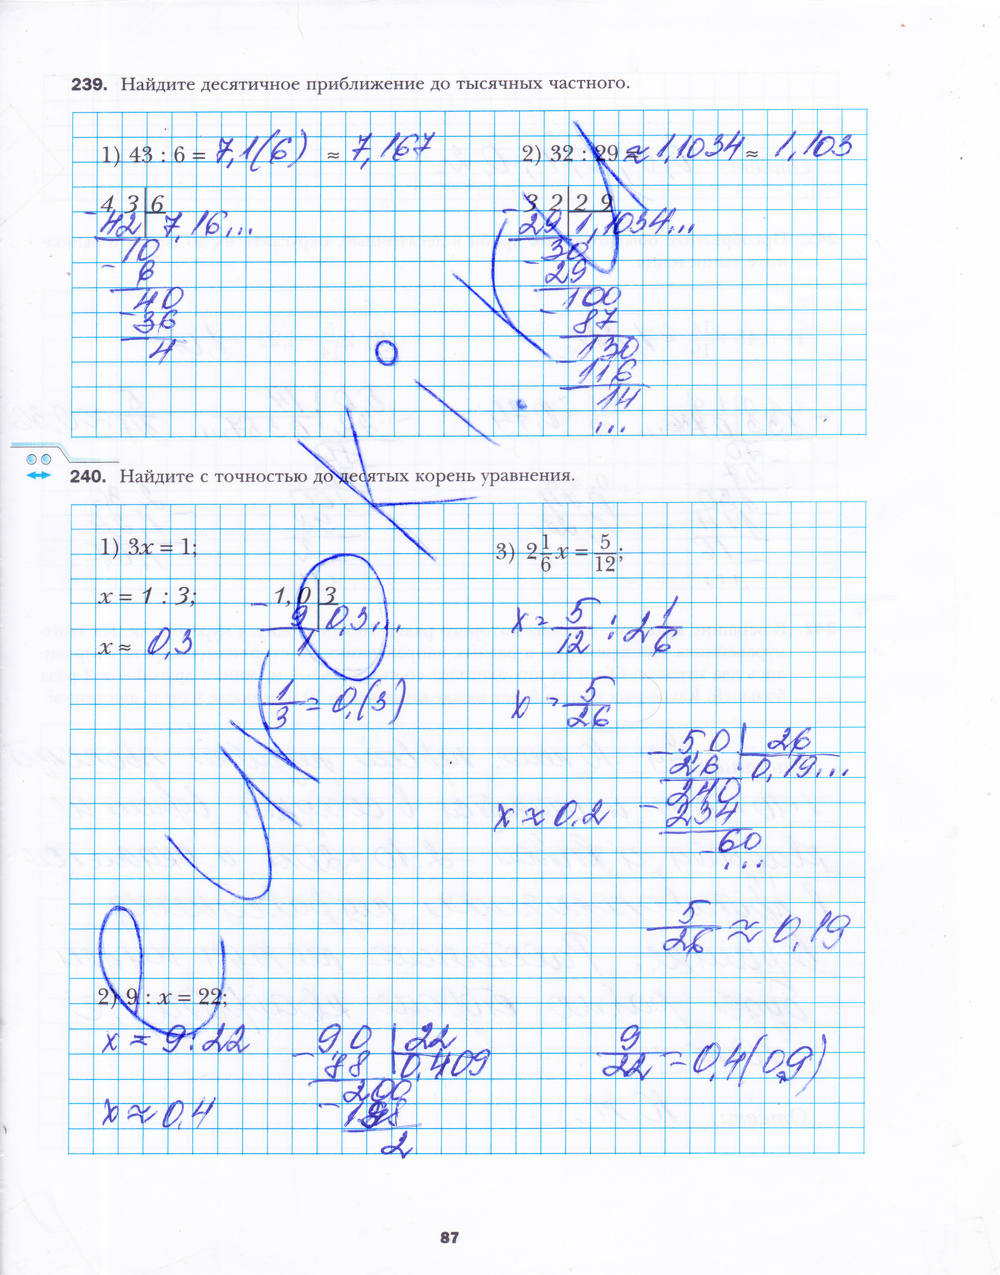 239. Найдите десятичное приближение до тысячных частного.
1) 43 : 6 = 7,1(6) ≈ 7,167
2) 32 : 29 ≈ 1,1034 ≈ 1,103
4 3 6
- 42 7,16...
10
- 6
40
- 36
4
3 2 2 9
- 29 1,1034...
30
- 29
100
- 87
130
- 116
14
...
240. Найдите с точностью до десятых корень уравнения.
1) 3x = 1;
x = 1 : 3;
x ≈ 0,3
- 1, 0 3
9 0,3...
1
1/3 = 0,(3)
3) 2 1/6 x = 5/12;
x = 5/12 : 2 1/6
x = 5/26
- 5,0 26
26 0,19...
240
- 234
60
...
x ≈ 0,2
5/26 ≈ 0,19
2) 9 : x = 22;
x = 9 : 22
x ≈ 0,4
- 9,0 22
88 0,409
200
- 198
2
9/22 = 0,4(09)
87